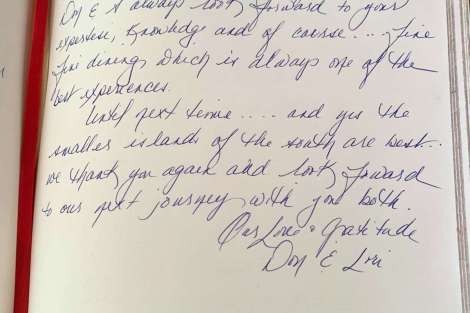 Don & I always look forward to your
expertese, knowledge and of course.... fine
fine dining which is always one of the
best experiences.
Until next time.... and yes the
smaller islands of the south are best..
we thank you again and look forward
to our next journey with you both.
Our Love & Gratitude
Don & Lori